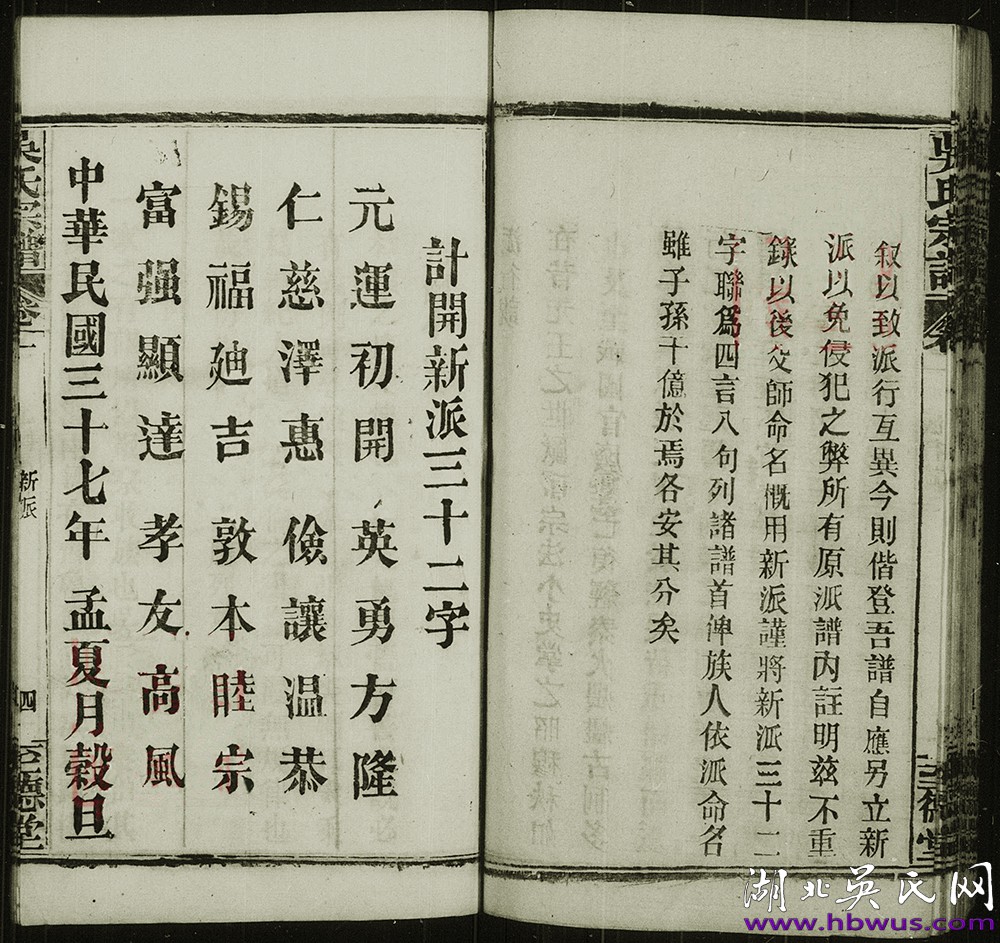 吳氏宗譜
敍以致派行互異今則偕登吾譜自應另立新
派以免侵犯之弊所有原派譜內註明兹不重
錄以後父師命名慨用新派謹將新派三十二
字聯爲四言八句列諸譜首俾族人依派命名
雖子孫千億於焉各安其分矣
至德堂
計開新派三十二字
元運初開英勇方隆
仁慈澤惠儉讓溫恭
錫福廸吉敦本睦宗
富强顯達孝友高風
中華民國三十七年孟夏月榖旦
吳氏宗譜
新派
四
至德堂
湖北吴氏网
www.hbwus.com